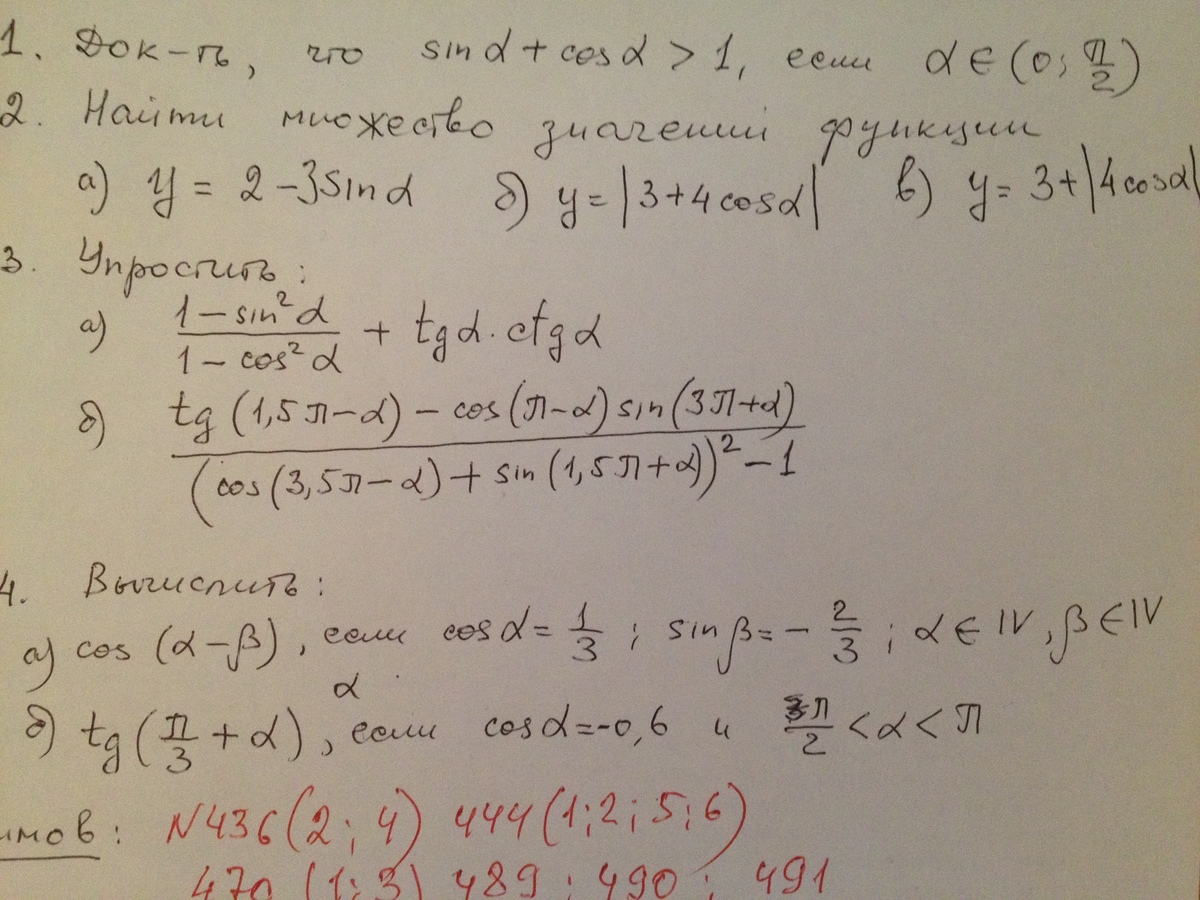 1. Док-ть, что sinα + cosα > 1, если α ∈ (0; π/2)
2. Найти множество значений функции
а) y = 2 - 3sinα б) y = |3 + 4cosα| в) y = 3 + |4cosα|
3. Упростить:
а) (1 - sin²α)/(1 - cos²α) + tgα · ctgα
б) (tg(1,5π - α) - cos(π - α) sin(3π + α))/((cos(3,5π - α) + sin(1,5π + α))² - 1)
4. Вычислить:
а) cos (α - β), если cosα = 1/3 ; sinβ = - 2/3 ; α ∈ IV, β ∈ IV
α
б) tg(π/3 + α), если cosα = -0,6 и π/2 < α < π
имов: N436(2; 4) 444(1; 2; 5; 6)
470 (1; 3) 489; 490; 491